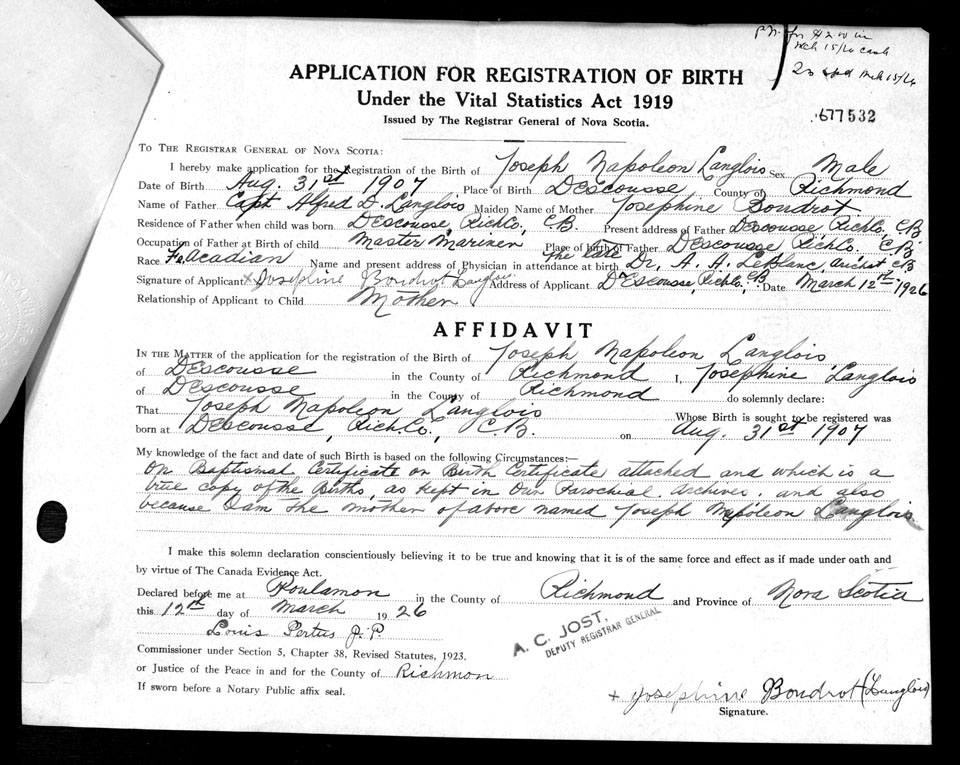 Mch 15/26 cash
20 Mch 15/26
APPLICATION FOR REGISTRATION OF BIRTH
Under the Vital Statistics Act 1919
Issued by The Registrar General of Nova Scotia.
677532
To The Registrar General of Nova Scotia:
I hereby make application for the Registration of the Birth of Joseph Napoleon Langlois Sex Male
Date of Birth Aug. 31st 1907 Place of Birth DEscousse, County of Richmond
Name of Father Capt Alfred D. Langlois Maiden Name of Mother Josephine Boudrot
Residence of Father when child was born DEscousse, Rich.Co., C.B. Present address of Father DEscousse, Rich.Co, C.B.
Occupation of Father at Birth of child Master Mariner Place of birth of Father DEscousse Rich.Co. C.B.
Race Fr. Acadian Name and present address of Physician in attendance at birth the late Dr. A. A. LeBlanc, Arichat C.B
Signature of Applicant x Josephine Boudrot Langlois Address of Applicant DEscousse, Rich.Co, C.B. Date March 12th 1926
Relationship of Applicant to Child Mother
AFFIDAVIT
In the Matter of the application for the registration of the Birth of Joseph Napoleon Langlois
of DEscousse in the County of Richmond I, Josephine Langlois
of DEscousse in the County of Richmond do solemnly declare:
That Joseph Napoleon Langlois Whose Birth is sought to be registered was
born at DEscousse, Rich.Co., C.B. on Aug. 31st 1907
My knowledge of the fact and date of such Birth is based on the following Circumstances:—
On Baptismal Certificate or Birth Certificate attached and which is a
true copy of the Births, as kept in our Parochial Archives, and also
because I am the mother of above named Joseph Napoleon Langlois.
I make this solemn declaration conscientiously believing it to be true and knowing that it is of the same force and effect as if made under oath and
by virtue of The Canada Evidence Act.
Declared before me at Poulamon in the County of Richmond and Province of Nova Scotia
this 12th day of March 1926
Louis Pertus J.P.
A. C. JOST,
DEPUTY REGISTRAR GENERAL
Commissioner under Section 5, Chapter 38, Revised Statutes, 1923.
or Justice of the Peace in and for the County of Richmon
If sworn before a Notary Public affix seal.
x Josephine Boudrot (Langlois)
Signature.